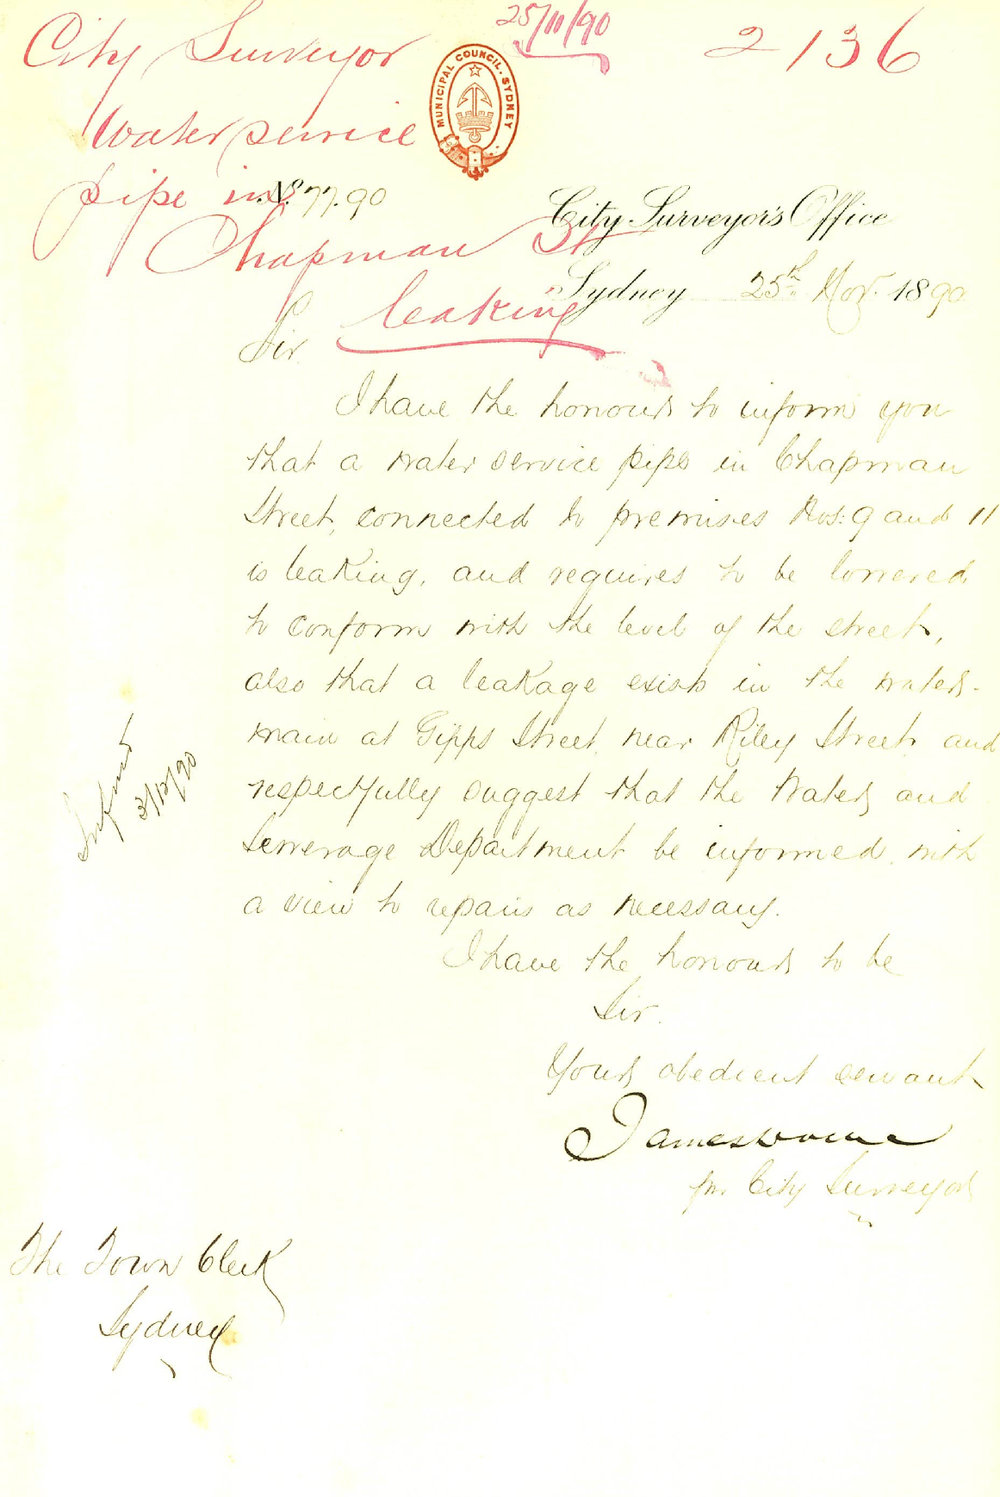 25/11/90
2136
City Surveyor
Water service
pipe in
Chapman St
leaking
MUNICIPAL COUNCIL. SYDNEY
No. 77.90
City Surveyor's Office
Sydney 25th Nov. 1890
Sir
I have the honour to inform you
that a water service pipe in Chapman
Street, connected to premises Nos: 9 and 11
is leaking, and requires to be lowered
to conform with the level of the street,
also that a leakage exists in the water-
main at Gipps Street, near Riley Street, and
respectfully suggest that the Water and
Sewerage Department be informed, with
a view to repairs as necessary.
I have the honour to be
Sir.
Your obedient servant
James
for City Surveyor
Informed
3/12/90
The Town Clerk
Sydney